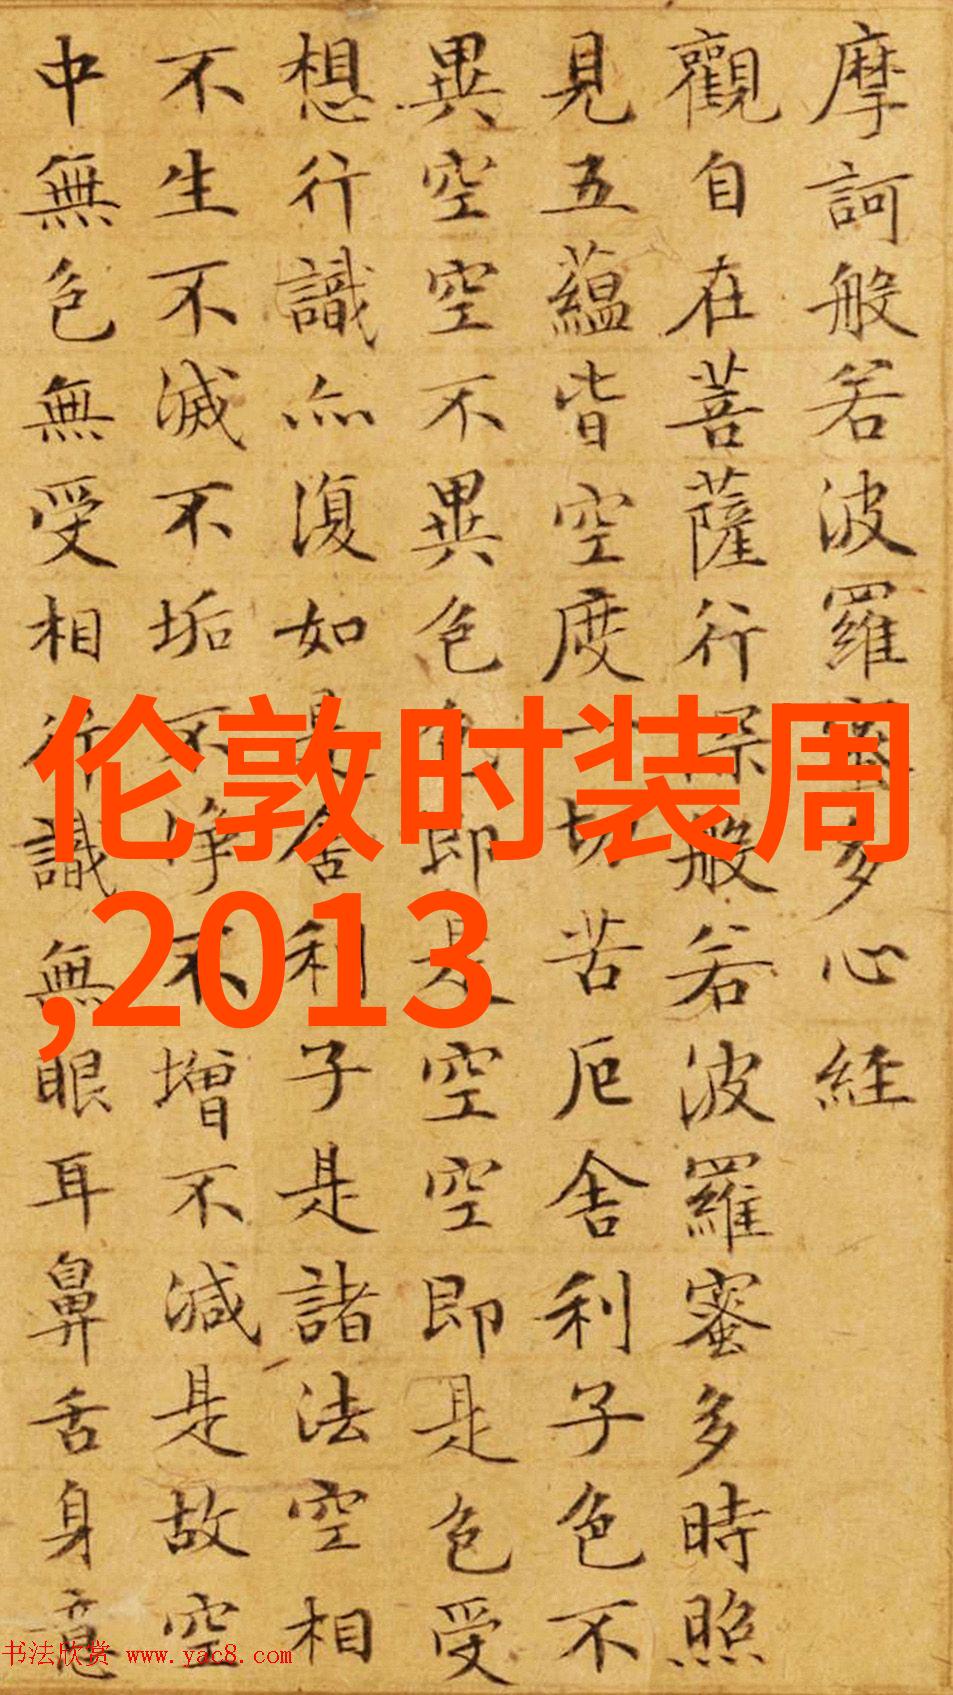 摩訶般若波羅蜜多心経
觀自在菩薩行深般若波羅蜜多時照
見五蘊皆空度一切苦厄舍利子色不
異空空不異色色即是空空即是色受
想行識亦復如是舍利子是諸法空相
不生不滅不垢不淨不增不減是故空
中無色無受相行識無眼耳鼻舌身意
伦敦时装周
,2013
书法欣赏 www.yac8.com